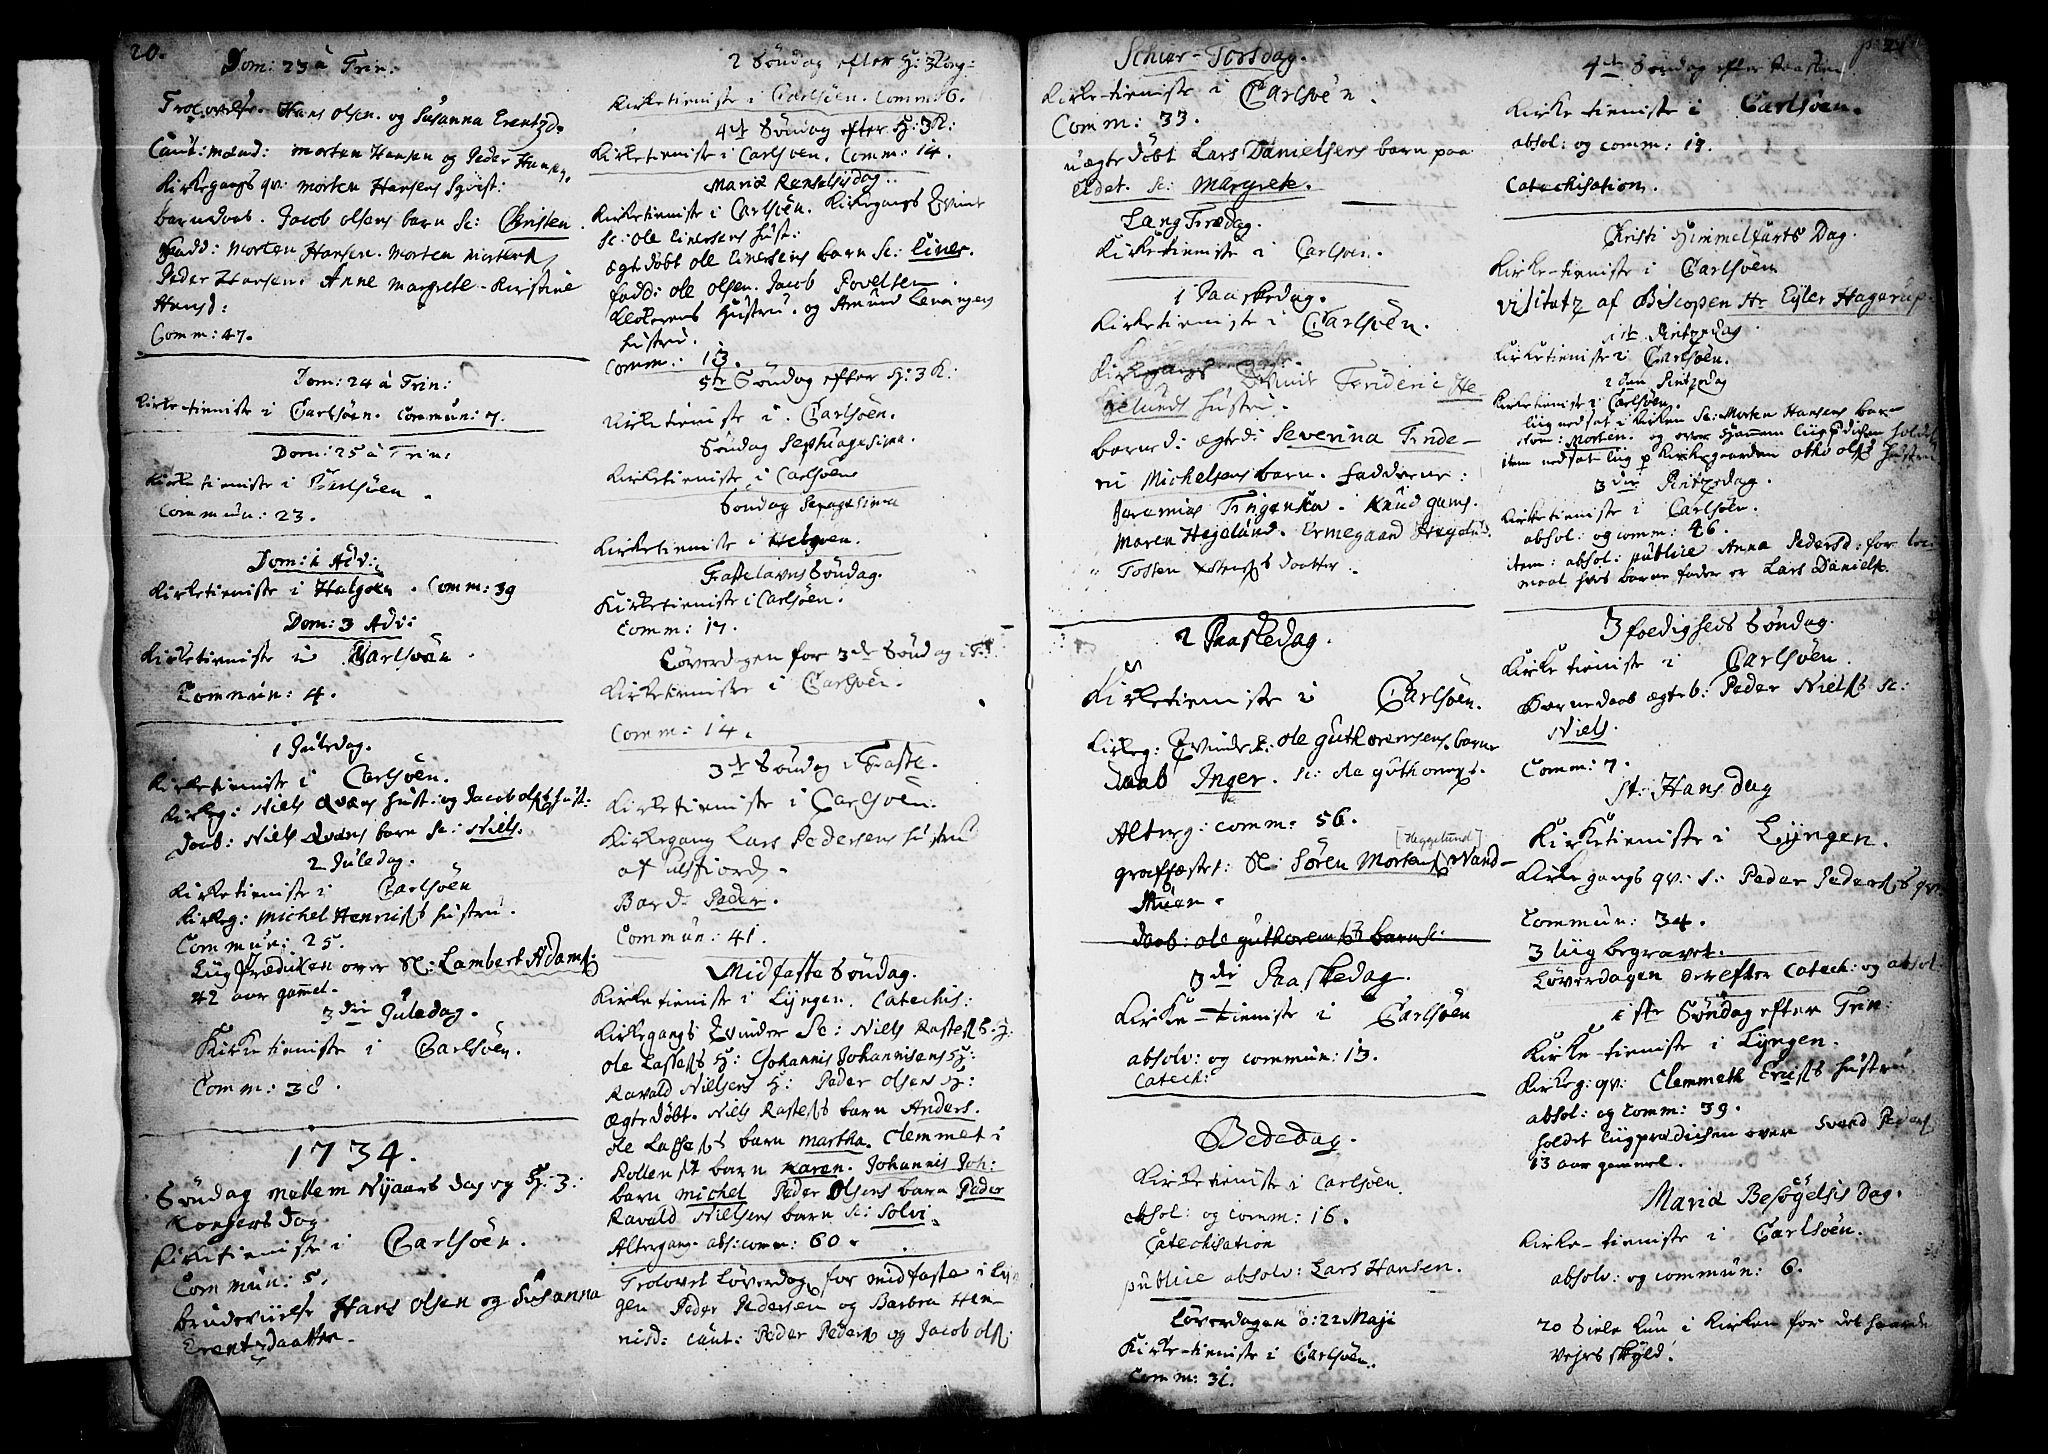 20.
Dom: 23 à Trin:
Trolovelse. Hans Olsen. og Susanna Erentzd.
Caut: mænd: Morten Hansen og Peder Hansen.
Kirkegangs qv: Morten Hansens
Barnedaab. Jacob Olsens barn Sc: Christen.
Fadd: Morten Hansen. Morten
Peder Hansen. Anne Margrete. Kirstine
Hansd:
Comm: 47.
Dom: 24 à Trin:
Kirketieniste i Carlsöen. Commun: 7.
Dom: 25 à Trin:
Kirketieniste i Carlsöen.
Commun: 23.
Dom: 1 Adv:
Kirketieniste i Helgøen. Comm: 39
Dom: 3 Adv:
Kirketieniste i Carlsöen.
Commun: 4.
1 Juledag.
Kirketieniste i Carlsöen.
Kirkeg: Niels Qvæns hust: og Jacob Ols: hust:
Daab: Niels Qvæns barn Sc: Niels.
2 Juledag.
Kirketieniste i Carlsöen
Kirkeg: Michel Henrichs hustru.
Commun: 25.
Liigprædiken over Sl: Lambert Adams:
42 aar gamel.
3die Juledag.
Kirketieniste i Carlsöen.
Comm: 38.
1734.
Søndag mellem Nyaars dag og H: 3:
Kongers dag
Kirketieniste i Carlsöen.
Commun: 5.
Brudevielse Hans Olsen og Susanna
Erentzdaatter.
2 Søndag efter H: 3 Kong:
Kirketieniste i Carlsöen. Comm: 6.
4de Søndag efter H: 3 K:
Kirketieniste i Carlsöen. Comm: 14.
Mariæ Renselsis dag.
Kirketieniste i Carlsöen. Kirkegangs Qvinde
Sc: Ole Einersens hust:
Ægte döbt Ole Einersens barn Sc: Einer.
Fadd: Ole Olsen. Jacob Povelsen.
Klokerens Hustru. og Amund
hustru.
Comm: 13.
5te Søndag efter H: 3 K:
Kirketieniste i Carlsöen.
Søndag Septuagesima.
Kirketieniste i Carlsöen
Søndag Sexagesima
Kirketieniste i Helgøen.
Fastelavns Søndag.
Kirketieniste i Carlsöen.
Comm: 17.
Löverdagen for 3de Søndag i F:
Kirketieniste i Carlsöen.
Comm: 14.
3de Søndag i Faste.
Kirketieniste i Carlsöen.
Kirkegang Lars Pedersens hustru
af Ulsfiord.
Bard: Peder.
Commun: 41.
Midfaste Søndag.
Kirketieniste i Lyngen. Catechis:
Kirkegangs Qvinder Sc: Niels Rastess. H:
Ole Lassess H: Johannis Johannisens H:
Ravald Nielsens H: Peder Olsens H:
Ægte döbt. Niels Rastess barn Anders.
Ole Lassess barn Martha. Clemmet i
Rollens barn Karen. Johannis Joh:
barn Michel Peder Olsens barn Peder
Ravald Nielsens barn Sc: Solvi.
Altergang. abs: comm: 60.
Trolovet Löverdag for midfaste i Lyn
gen Peder Pedersen og Barbra Hen-
nisd: caut: Peder Peders: og Jacob Ols:
Schier-Torsdag.
Kirke-tieniste i Carlsöen.
Comm: 33.
uægte döbt Lars Danielsens barn paa
Eidet. Sc: Margrete.
Lang Fredag.
Kirketieniste i Carlsöen.
1 Paaskedag.
Kirketieniste i Carlsöen.
Kirkegangs Qvinde Frideric He-
gelunds hustru.
Barned: ægte: Severina Fride-
ric Michelsens barn. Fadderne:
Jeremias Knud Gams.
Maren Hegelund. Ermegaard Hegelund.
Torsten daatter.
2 Paaskedag.
Kirketieniste i Carlsöen.
Kirkeg: Qvinde Sc: Ole Guthormsens. barne
daab Inger. Sc: Ole Guthorms:
Alterg: comm: 56.
[Heggelund]
grafsæstet: Sl: Søren Mortens: Vand-
Muen.
Daab: Ole Guthormsens barn Sc:
3die Paaskedag.
Kirke-tieniste i Carlsöen
absolv: og commun: 13.
Catech:
Bededag.
Kirketieniste i Carlsöen.
absol: og comm: 16.
Catechisation
publice absolv: Lars Hansen.
Löverdagen d: 22 Maji
Kirke-tieniste i Carlsöen.
Comm: 31.
p: 21
4de Søndag efter Paaske
Kirketieniste i Carlsöen.
absol: og comm: 19.
Catechisation.
Christi Himmelfarts Dag.
Kirke-tieniste i Carlsöen
Visitatz af Biscopen Hr Eyler Hagerup.
1te Pintzedag
Kirketieniste i Carlsöen.
2den Pintzedag
Kirketieniste i Carlsöen.
liig nedsat i Kirken Sc: Morten Hansens bar-
Morten. og over hannem Liigprædichen holdet
item nedsat liig p Kirkegaarden Otho Ols: hustru.
3die Pintzedag.
Kirketieniste i Carlsöen.
absol: og comm: 46.
item: absol: publice Anna Pedersd: for lei-
maal hvis barne fader er Lars Daniels.
Trefoldigheds Søndag.
Kirketieniste i Carlsöen.
Barnedaab ægte b: Peder Niels: Sc:
Niels.
Comm: 7.
St: Hans dag
Kirketieniste i Lyngen.
Kirkegangs qv: S: Peder Peders: qv:
Commun: 34.
3 liig begravet.
Löverdagen derefter Catech: og absol:
1ste Søndag efter Trin:
Kirke-tieniste i Lyngen.
Kirkeg: qv: Clemmeth hustru
absol: og comm: 39.
holdet liigprædichen over Svend Peders:
13 aar gammel.
Mariæ Besøgelsis dag.
Kirke-tieniste i Carlsöen.
absolv: og commun: 6.
20 Siele kun i Kirken for det haarde
Vejrs skyld.